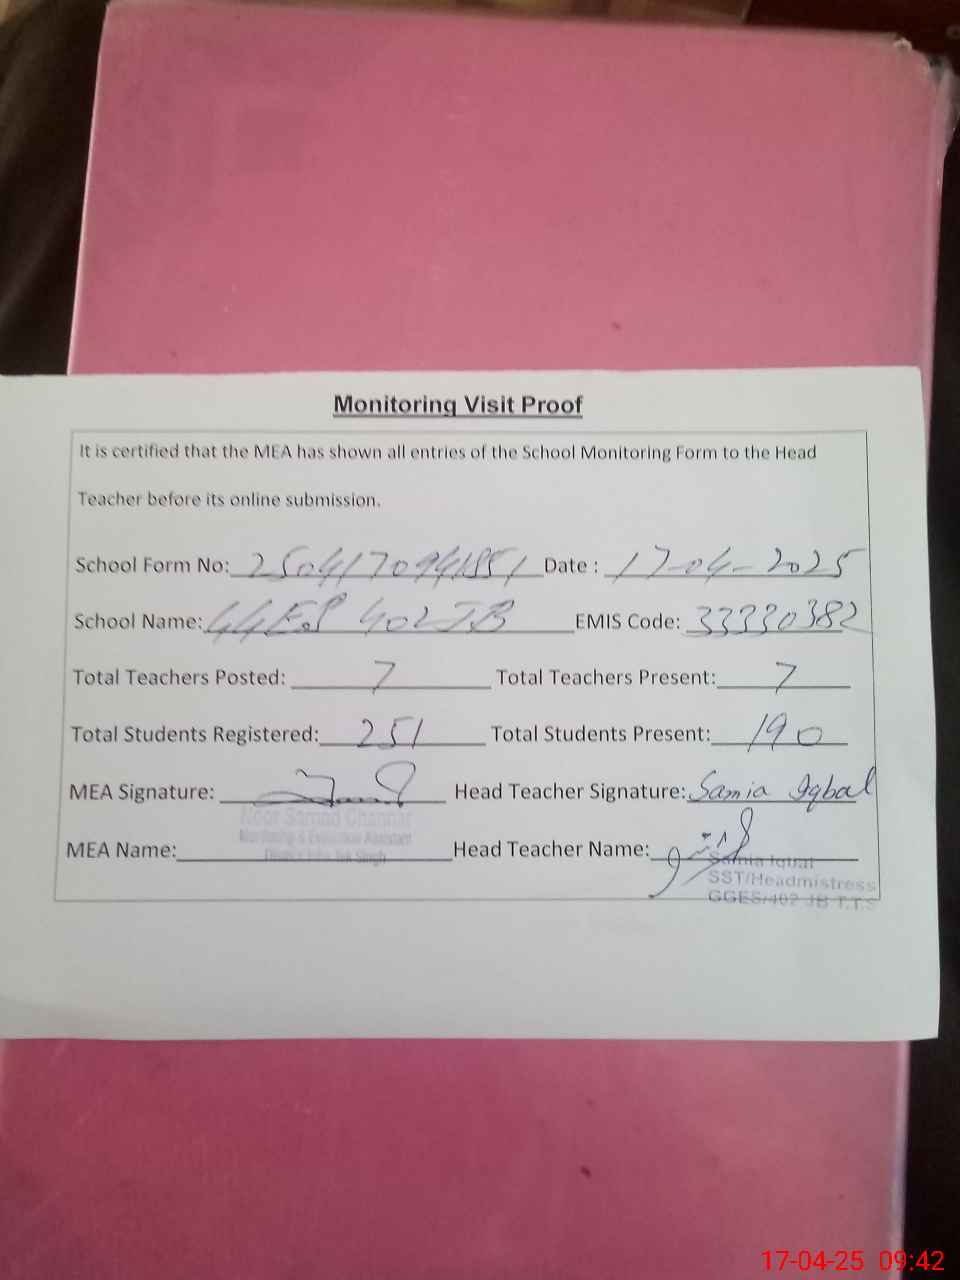 Monitoring Visit Proof
It is certified that the MEA has shown all entries of the School Monitoring Form to the Head
Teacher before its online submission.
School Form No: 2504170941851 Date : 17-04-2025
School Name: GGES 402 JB EMIS Code: 33330382
Total Teachers Posted: 7 Total Teachers Present: 7
Total Students Registered: 251 Total Students Present: 190
MEA Signature: Head Teacher Signature: Samia Iqbal
Noor Samad Channar
Monitoring & Evaluation Assistant
MEA Name: Head Teacher Name:
Samia Iqbal
SST/Headmistress
GGES/402 JB T.T.S
17-04-25 09:42